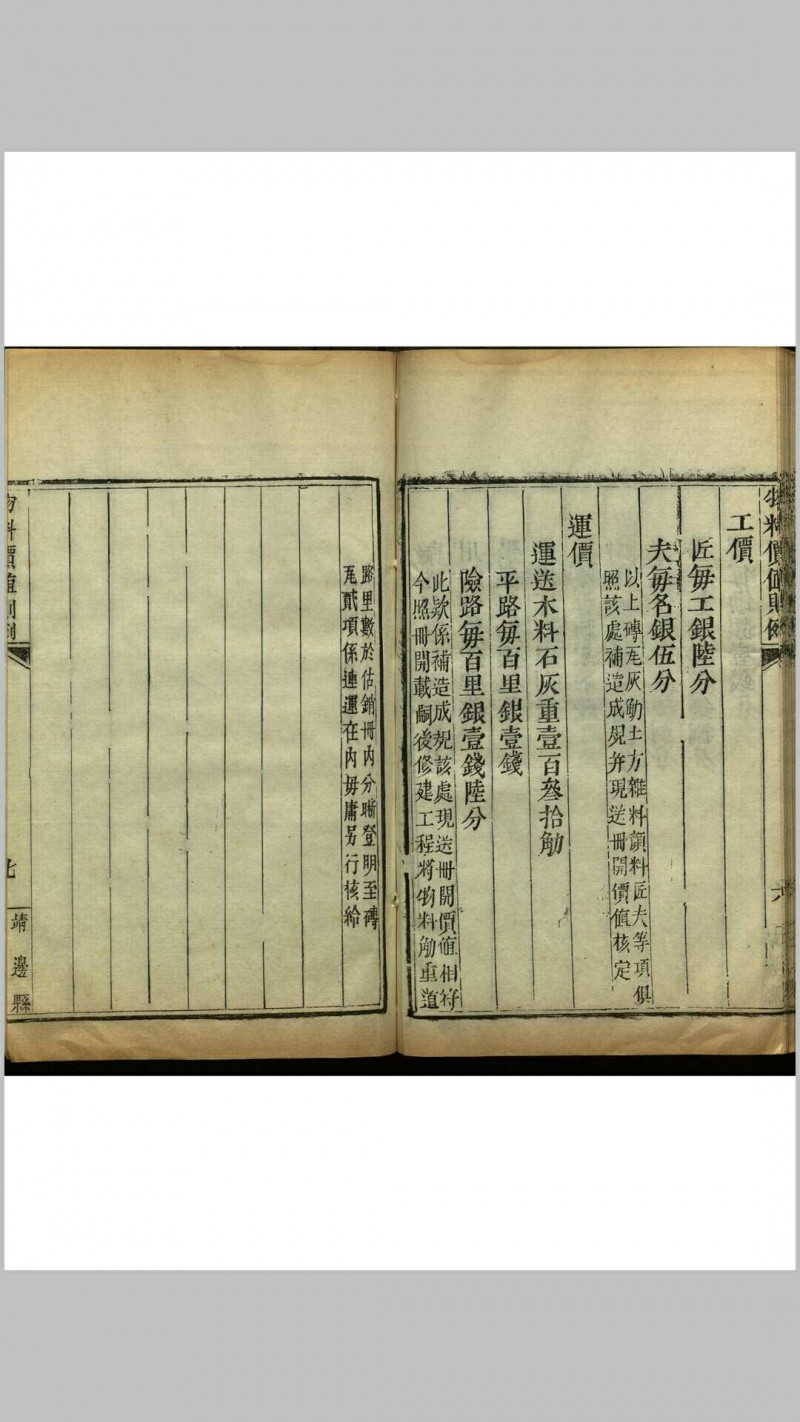 物料價值則例
六
工價
匠每工銀陸分
夫每名銀伍分
以上磚瓦灰觔土方雜料顔料匠夫等項俱
照該處補造成規并現送冊開價值核定
運價
運送木料石灰重壹百叁拾觔
平路每百里銀壹錢
險路每百里銀壹錢陸分
此欵係補造成規該處現送冊開價值相符
今照冊開載嗣後修建工程將物料觔重道
路里數於估銷冊内分晰登明至磚
瓦貳項係連運在内毋庸另行核給
物料價值則例
七
靖邊縣